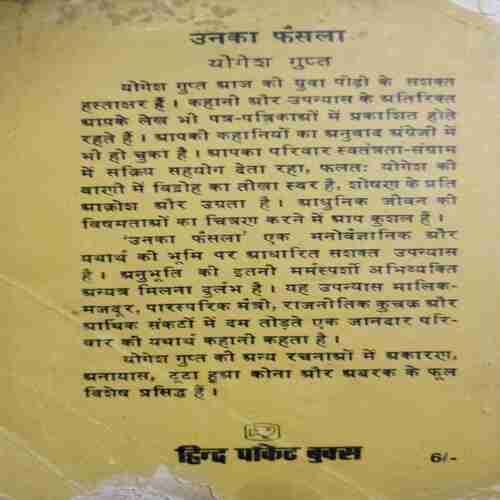 उनका फैसला
योगेश गुप्त
योगेश गुप्त आज की युवा पीढ़ी के सशक्त
हस्ताक्षर हैं । कहानी और उपन्यास के अतिरिक्त
आपके लेख भी पत्र-पत्रिकाओं में प्रकाशित होते
रहते हैं । आपकी कहानियों का अनुवाद अंग्रेजी में
भी हो चुका है । आपका परिवार स्वतंत्रता-संग्राम
में सक्रिय सहयोग देता रहा, फलतः योगेश की
वाणी में विद्रोह का तीखा स्वर है, शोषण के प्रति
आक्रोश और उग्रता है । आधुनिक जीवन की
विषमताओं का चित्रण करने में आप कुशल हैं ।
'उनका फैसला' एक मनोवैज्ञानिक और
यथार्थ की भूमि पर आधारित सशक्त उपन्यास
है । अनुभूति की इतनी मर्मस्पर्शी अभिव्यक्ति
अन्यत्र मिलना दुर्लभ है । यह उपन्यास मालिक-
मजदूर, पारस्परिक मैत्री, राजनीतिक कुचक्र और
आर्थिक संकटों में दम तोड़ते एक जानदार परि-
वार की यथार्थ कहानी कहता है ।
योगेश गुप्त की अन्य रचनाओं में अकारण,
अनायास, टूटा हुआ कोना और अबरक के फूल
विशेष प्रसिद्ध हैं ।
हिन्द पॉकेट बुक्स
6/-